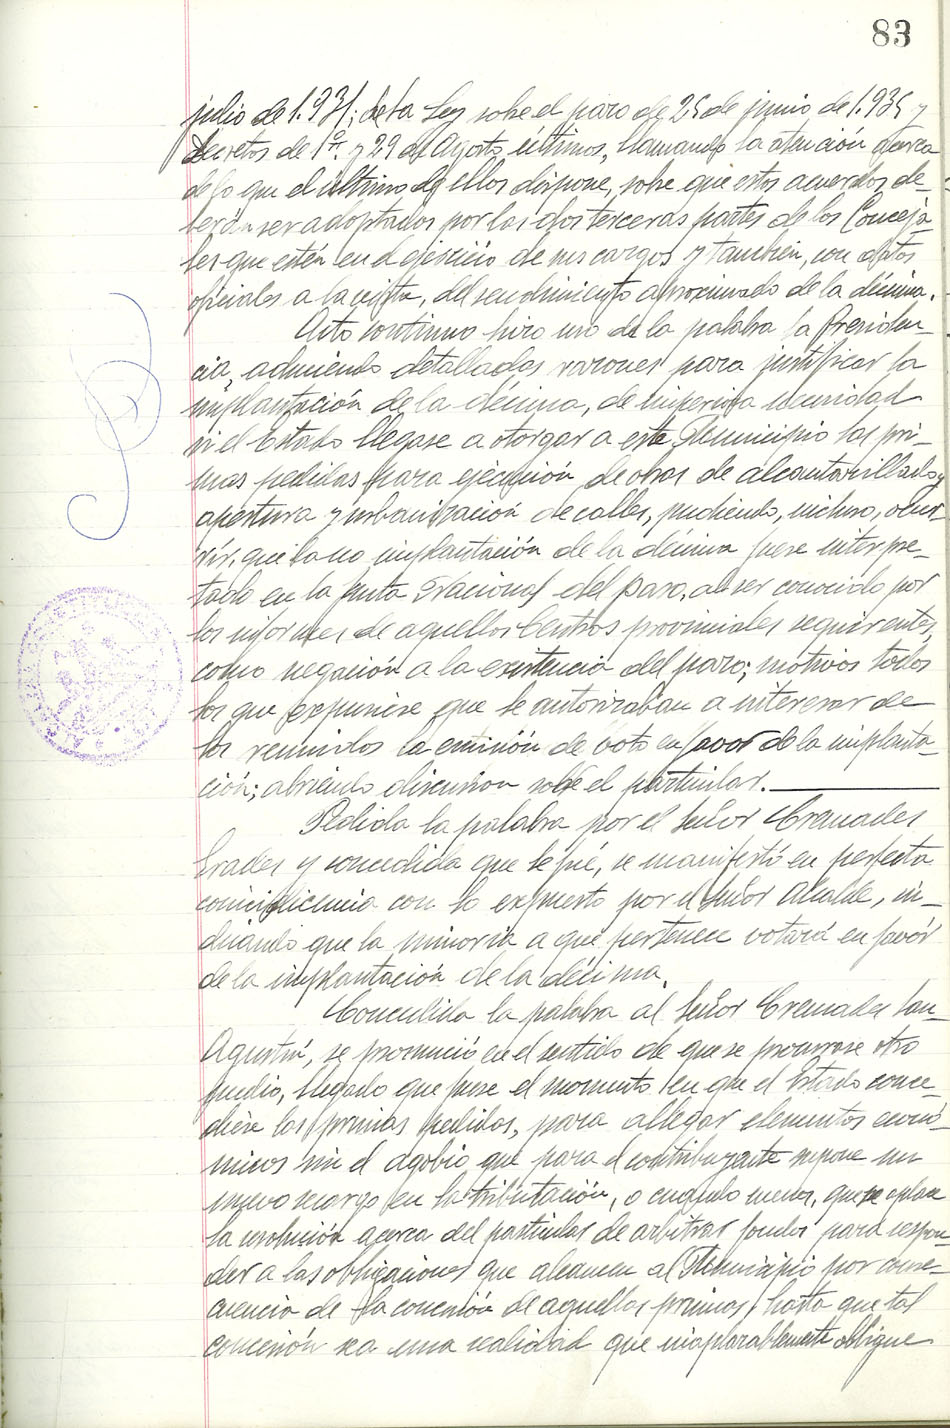 83
julio de 1.931; de la Ley sobre el paro de 25 de junio de 1.935 y
Decretos de 1º. y 29 de Agosto últimos, llamando la atención acerca
de lo que el último de ellos dispone, sobre que estos acuerdos de-
berán ser adoptados por las dos terceras partes de los Conceja-
les que estén en el ejercicio de sus cargos y también, con datos
oficiales a la vista, del rendimiento aproximado de la décima.
Acto continuo hizo uso de la palabra la Presiden-
cia, aduciendo detalladas razones para justificar la
implantación de la décima, de imperiosa necesidad
si el Estado llegase a otorgar a este Municipio las pri-
mas pedidas para ejecución de obras de alcantarillado y
apertura y urbanización de calles, pudiendo, incluso, ocur-
rir, que la no implantación de la décima fuese interpre-
tado en la Junta Nacional del paro, al ser conocido por
los informes de aquellos Centros provinciales requirentes,
como negación a la existencia del paro; motivos todos
los que expusiese que le autorizaban a interesar de
los reunidos la emisión de voto en favor de la implanta-
ción; abriendo discusión sobre el particular.
Pedida la palabra por el Señor Granades
Prades y concedida que le fué, se manifestó en perfecta
coincidencia con lo expuesto por el Señor Alcalde, in-
dicando que la minoría a que pertenece votará en favor
de la implantación de la décima.
Concedida la palabra al Señor Cremades San-
Agustín, se pronunció en el sentido de que se procurase otro
medio, llegado que fuese el momento en que el Estado conce-
diese las primas pedidas, para allegar elementos econó-
micos sin el agobio que para el contribuyente supone un
nuevo recargo en la tributación, o cuando menos, que se aplace
la resolución acerca del particular de arbitrar fondos para respon-
der a las obligaciones que alcancen al Municipio por conse-
cuencia de la concesión de aquellas primas, hasta que tal
concesión sea una realidad que inaplazablemente obligue